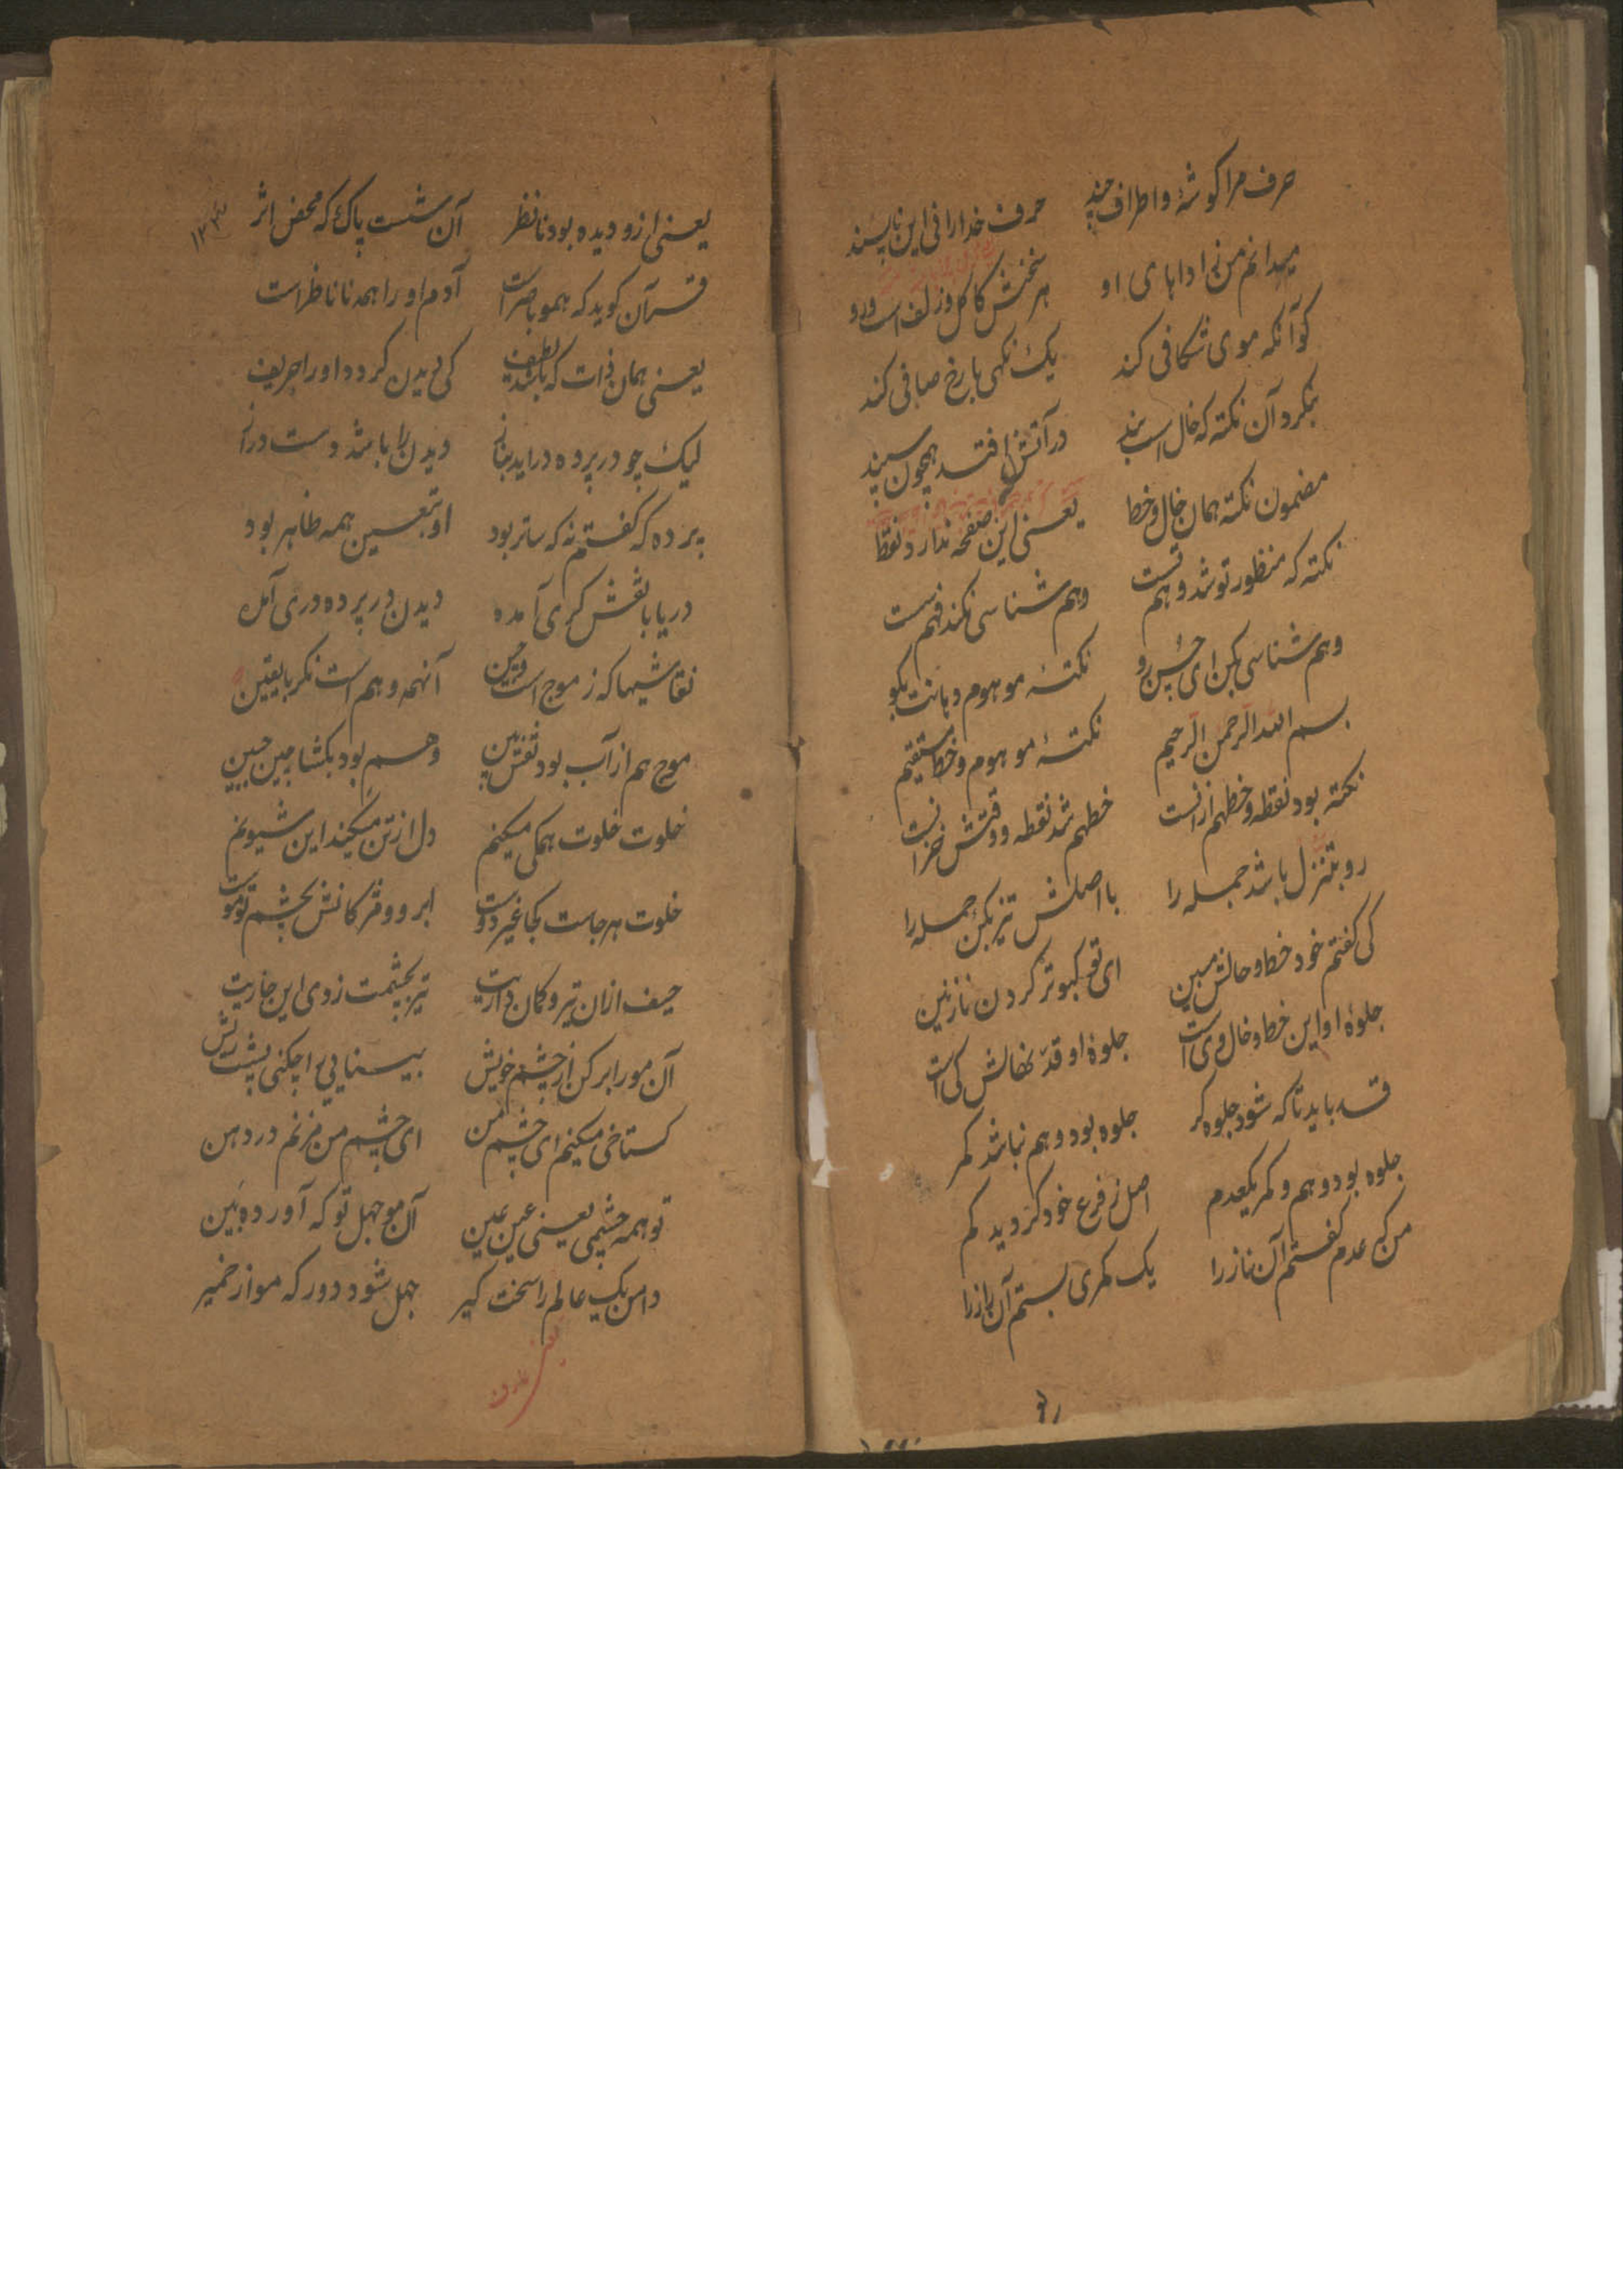 حرف مرا گوشهٔ و اطراف چند    حرف خدا را فی این ناپسند
میدانم من زاداهای او    هر سخنش کاکل و زلف است و رو
گو آنکه موی شکافی کند    یک نگهی با رخ صافی کند
بنگرد آن نکته که خال است بند    در آتش افتد همچون سپند
مضمون نکته همان خال و خط    یعنی این صفحه ندارد نقط
نکته که منظور تو شد وهم تست    وهم شناسی نکند فهم سست
وهم شناسی بکن ای حسن رو    نکتهٔ موهوم دهانت بگو
بسم الله الرحمن الرحیم    نکتهٔ موهوم و خط مستقیم
نکته بود نقطه و خطهم ازانست    خطهم شد نقطه و دقتش
رو بتنزل باشد جمله را    با اصلش تیز بکن جمله را
کی گفتم خود خط و خالش مبین    ای تو کبوتر گردن نازنین
جلوهٔ او این خط و خال وی است    جلوهٔ او قد نهالش کی است
قد باید تا که شود جلوه گر    جلوه بود وهم نباشد کمر
جلوه بود وهم و کمر یکعدم    اصل ز فرع خود گردید کم
من که عدم گفتم آن ناز را    یک کمری بستم آن راز را
یعنی ازو دیده بود نا نظر    آن شست پاک که محض اثر
۱۲۳۴
قرآن گوید که همو باصر است    آدم او را همه نا ناظر است
یعنی همان ذات که باشد لطیف    کی دیدن گردد او را حریف
لیک چو در پرده دراید بناز    دیدن را باشد دست دراز
پرده که گفتم نه که ساتر بود    او بتعین همه ظاهر بود
دریا با نقش گری آمده    دیدن در پرده دری آمده
نقاشیها که ز موج است و چین    آنهمه وهم است نگر با یقین
موج هم از آب بود نقش بین    وهم بود بگشا چین جبین
خلوت خلوت همگی میکنم    دل از تن میکند این شیونم
خلوت هر جاست کجا غیر دوست    ابرو و مژگانش بچشم تو موست
حیف ازان تیر و کمان داریت    تیر بچشمت زدی این جاریت
آن مو را بر کن از چشم خویش    بینایی را چکنی پشت ریش
گستاخی میکنم ای چشم من    ای چشم من مزنم در دهن
تو همه چشمی یعنی عین عین    آن مو جهل تو که آورده بین
دامن یک عالم را سخت گیر    جهل شود دور که مو از خمیر